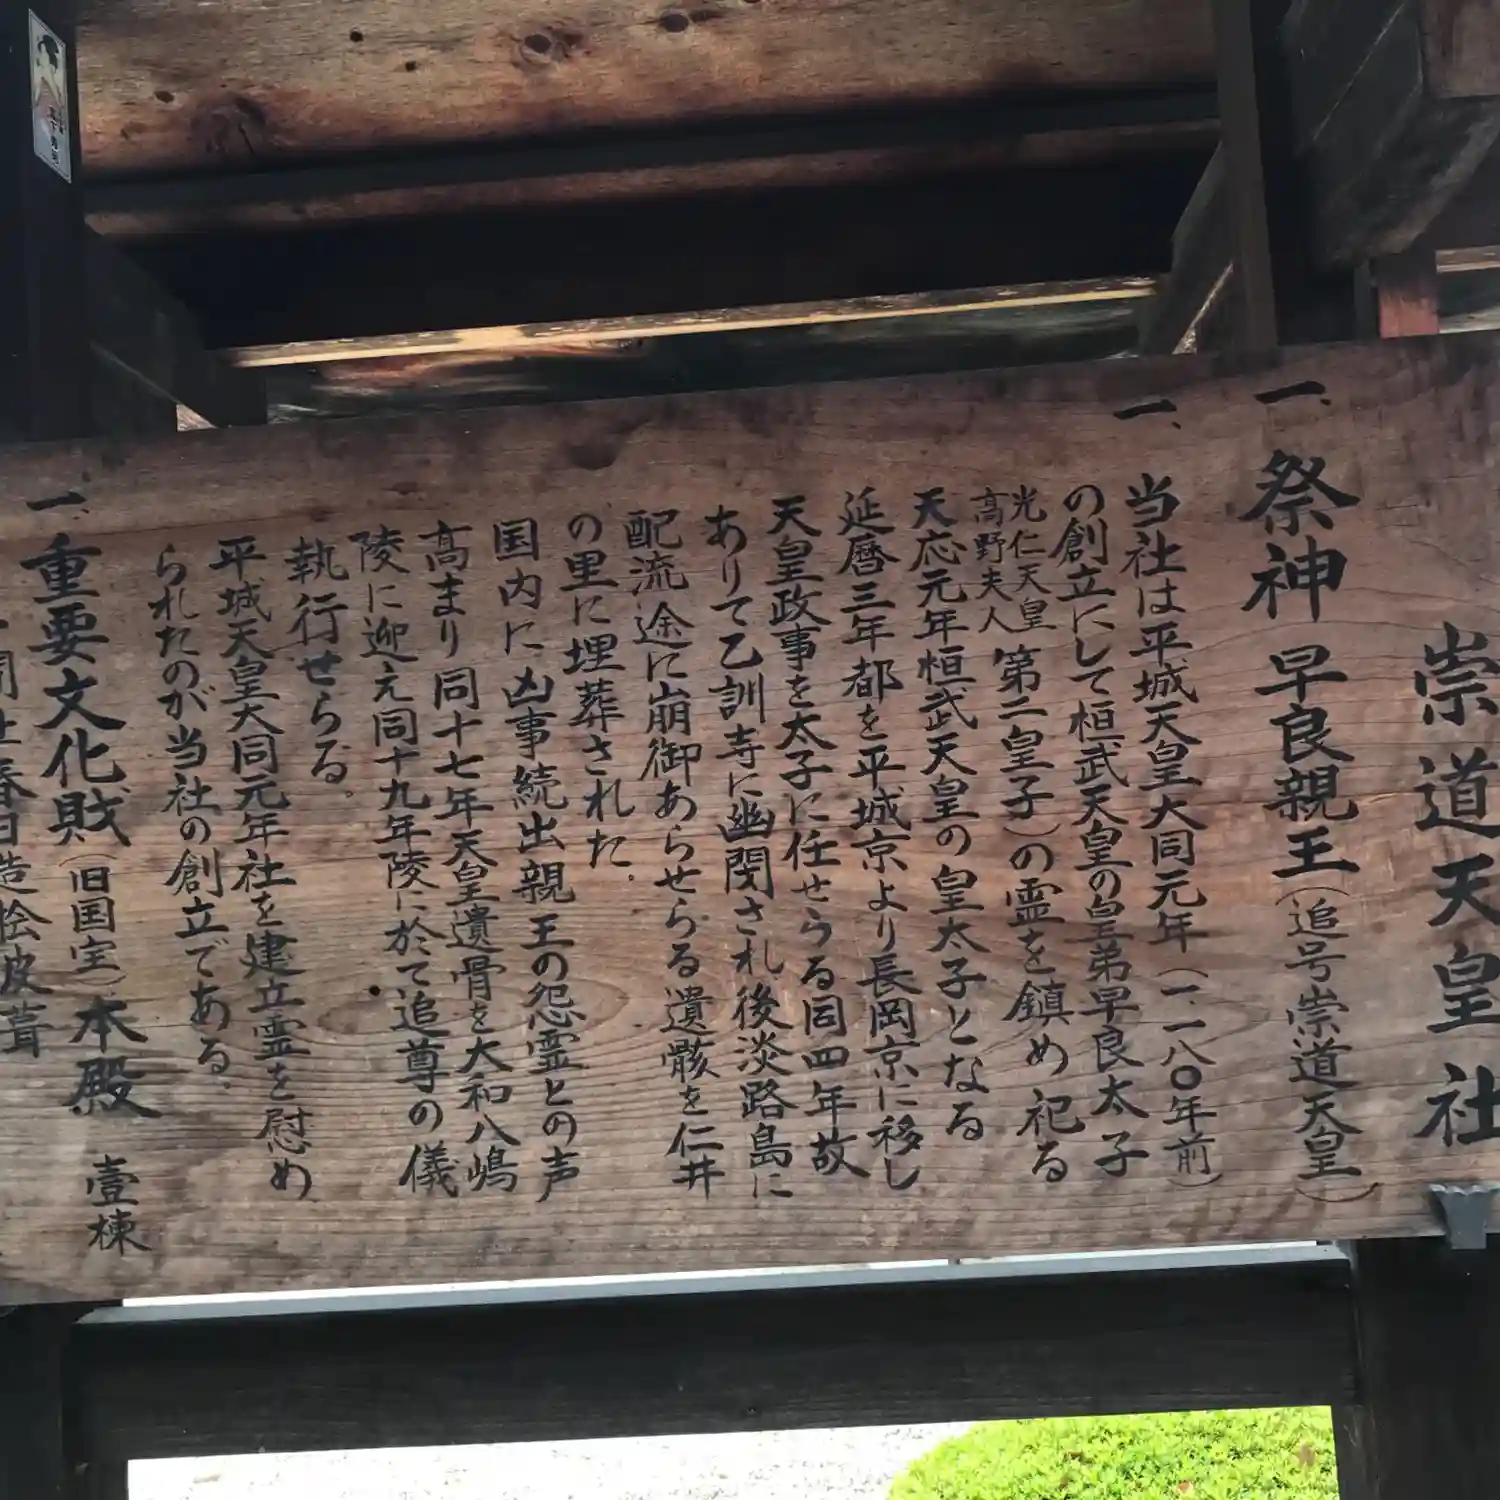 崇道天皇社
一、祭神 早良親王(追号崇道天皇)
一、当社は平城天皇大同元年(一一八〇年前)
の創立にして桓武天皇の皇弟早良太子
光仁天皇
高野夫人
第二皇子)の霊を鎮め祀る
天応元年桓武天皇の皇太子となる
延暦三年都を平城京より長岡京に移し
天皇政事を太子に任せらる同四年故
ありて乙訓寺に幽閉され後淡路島に
配流途に崩御あらせらる遺骸を仁井
の里に埋葬された。
国内に凶事続出親王の怨霊との声
高まり同十七年天皇遺骨を大和八嶋
陵に迎え同十九年陵に於て追尊の儀
執行せらる。
平城天皇大同元年社を建立霊を慰め
られたのが当社の創立である。
一、重要文化財(旧国宝)本殿 壹棟
春日造桧皮葺